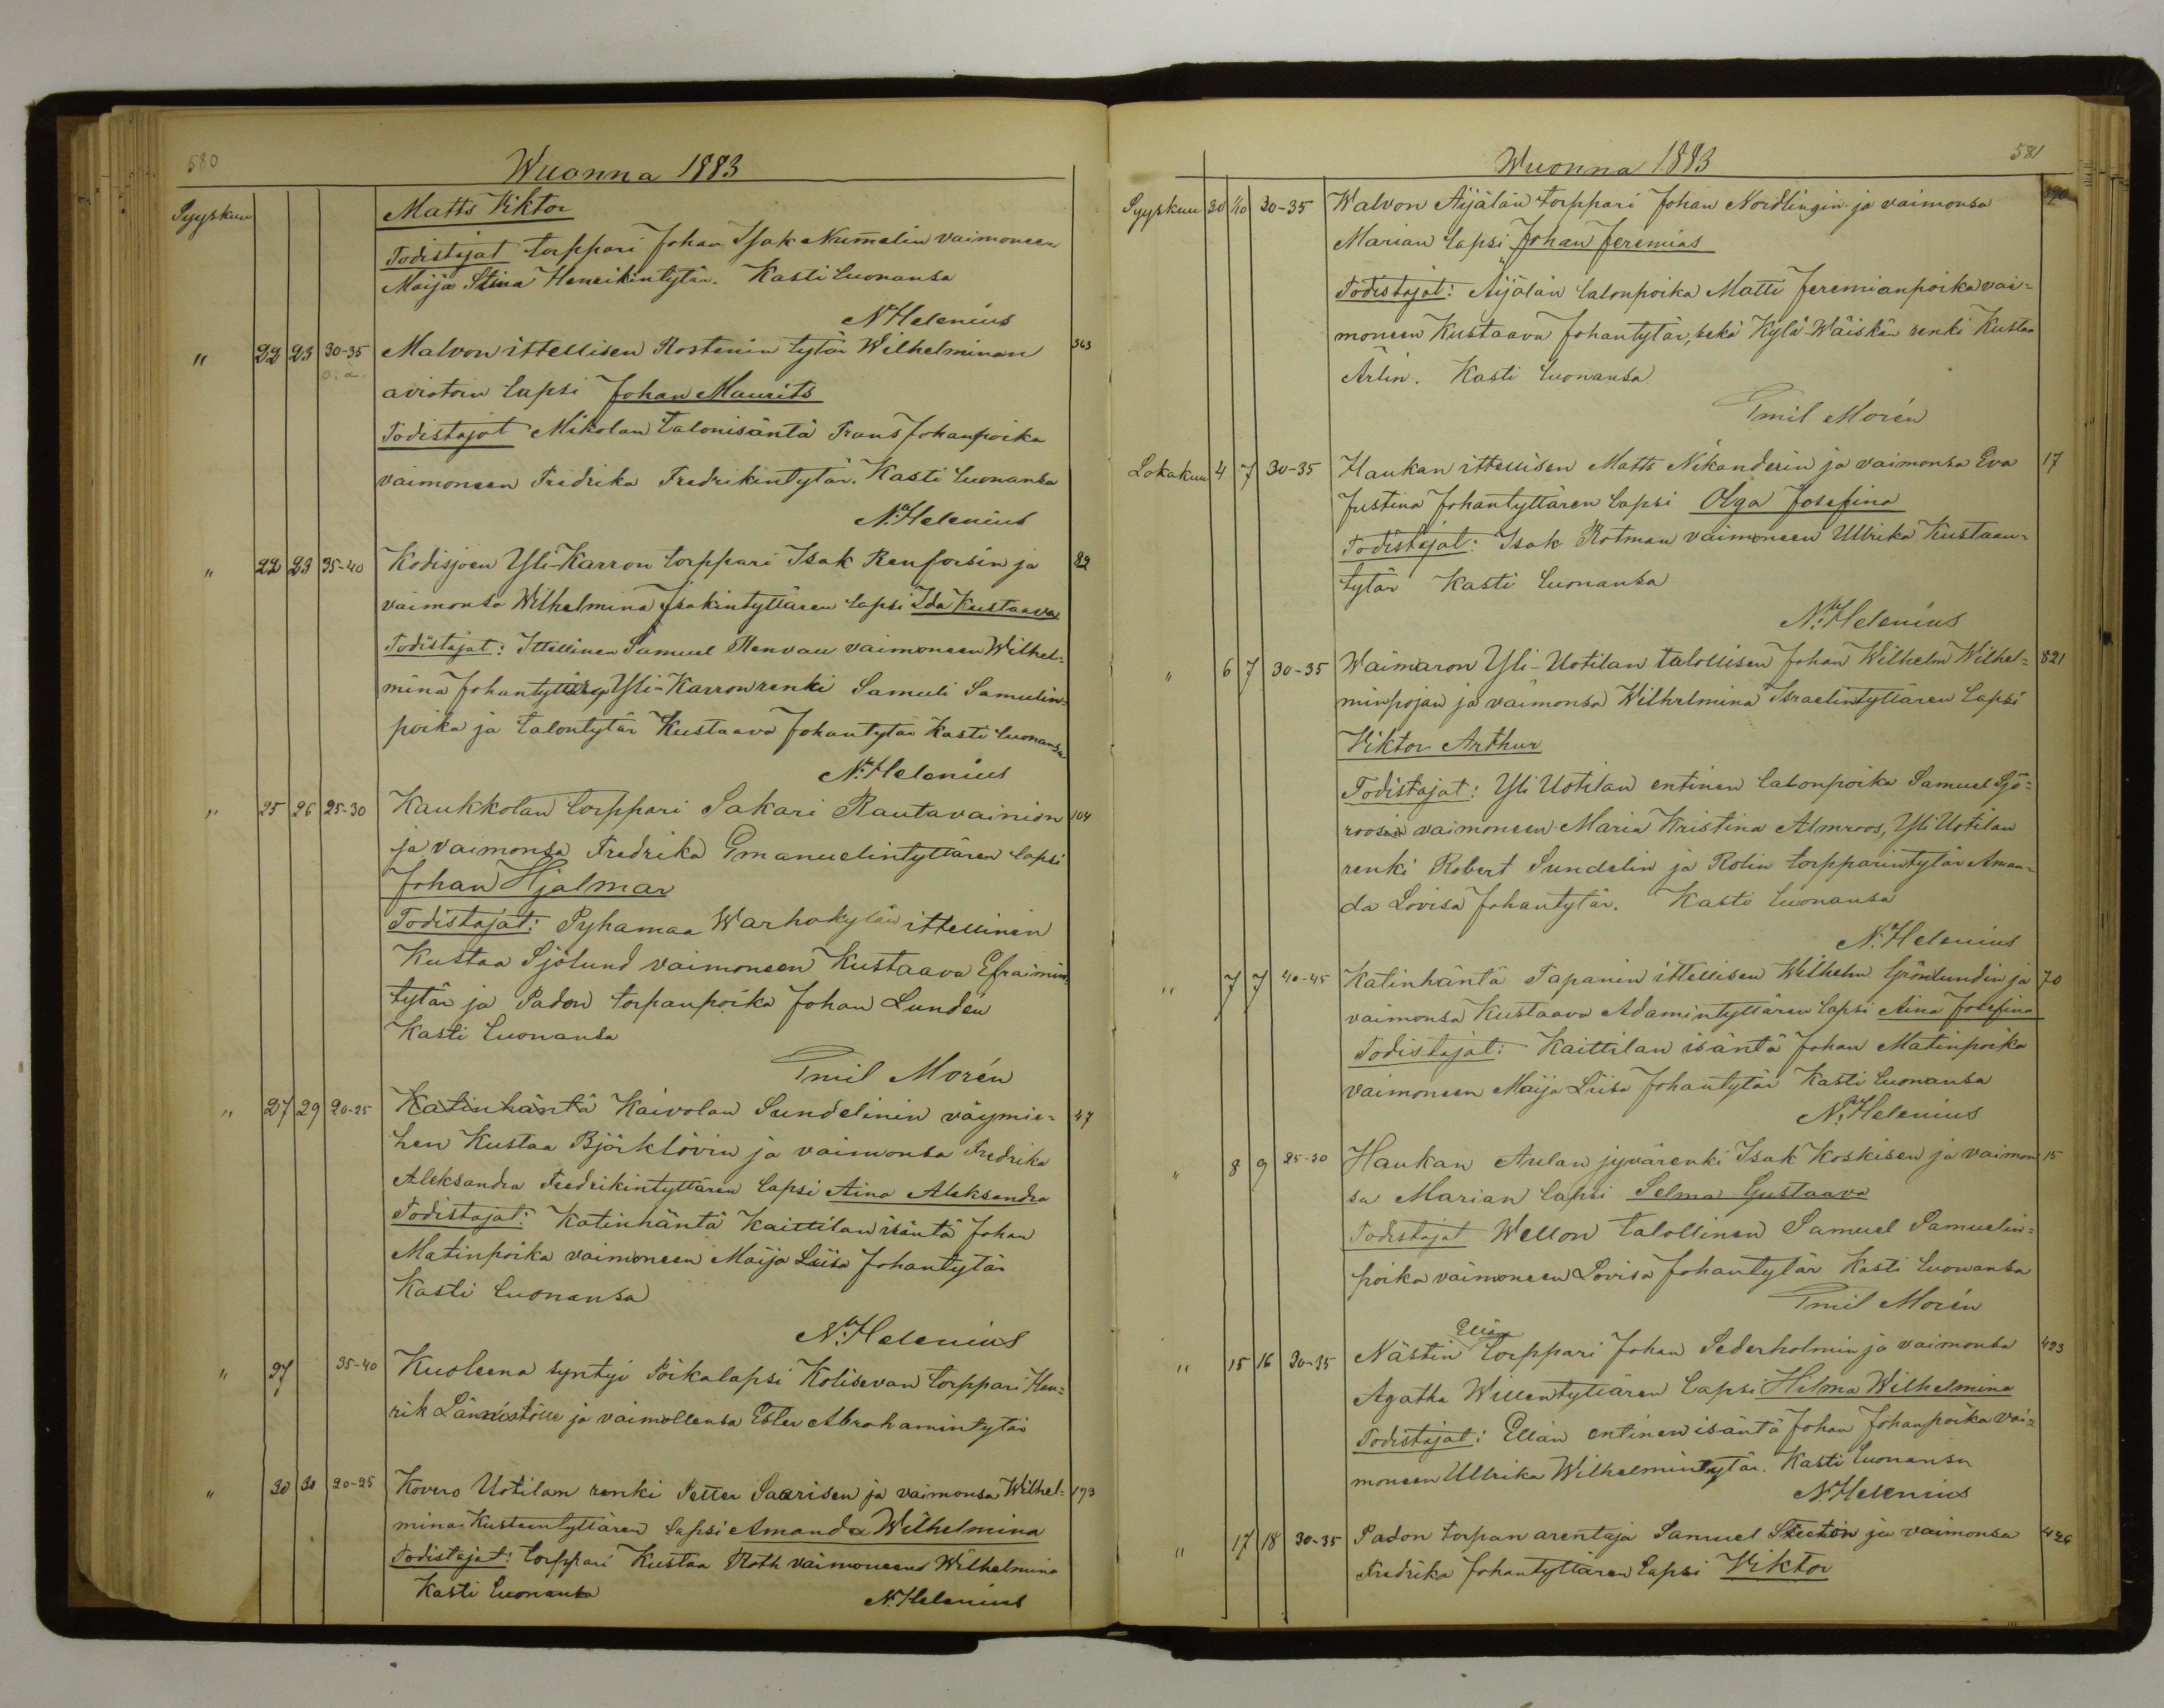 580
Wuonna 1883
Syyskuu
Matts Viktor
Todistajat torppari Johan Isak Numelin vaimoneen
Maija Stina Henrikintytär. Kasti luonansa
N. Helenius
" 22 23 30-35 Malvon ittellisen Rostenin tytär Wilhelminan 563
o. ä.
aviotoin lapsi Johan Maurits
Todistajat Mikolan talonisäntä Frans Johanpoika
vaimoneen Fredrika Fredrikintytär. Kasti luonansa
N. Helenius
" 22 23 35-40 Kodisjoen Yli-Karron torppari Isak Renforsin ja 82
vaimonsa Wilhelmina Isakintyttären lapsi Ida Kustaava
Todistajat: Ittellinen Samuel Renvau vaimoneen Wilhel=
mina Johantytär, Yli-Karron renki Samuli Samulin=
poika ja talontytär Kustaava Johantytär Kasti luonansa
N. Helenius
" 25 26 25-30 Kaukkolan torppari Sakari Rautavainion 104
ja vaimonsa Fredrika Emanuelintyttären lapsi
Johan Hjalmar
Todistajat: Pyhamaa Warhokylän ittellinen
Kustaa Sjölund vaimoneen Kustaava Efraimin
tytär ja Padon torpanpoika Johan Lundén
Kasti luonansa
Emil Morén
" 27 29 20-25 Katinhäntä Kaivolan Sundelinin väymie= 47
hen Kustaa Björklövin ja vaimonsa Fredrika
Aleksandra Fredrikintyttären lapsi Aina Aleksandra
Todistajat: Katinhäntä Kaittilan isäntä Johan
Matinpoika vaimoneen Maija Liisa Johantytär
Kasti luonansa
N. Helenius
" 27 35-40 Kuoleena syntyi Poikalapsi Kolisevan torppari Hen=
rik Lännistölle ja vaimollensa Ester Abrahamintytär
" 30 30 20-25 Kovero Uotilan renki Petter Saarisen ja vaimonsa Wilhel= 193
mina Kustaantyttären lapsi Amanda Wilhelmina
Todistajat: torppari Kustaa Roth vaimoneens Wilhelmina
Kasti luonansa
N. Helenius
Wuonna 1883
581
Syyskuu 30 1/10 30-35 Walvon Äijälän torppari Johan Nordlingin ja vaimonsa 890
Marian lapsi Johan Jeremias
Todistajat: Äijälän talonpoika Matti Jeremianpoika vai=
moneen Kustaava Johantytär, sekä Kylä-Wäiskän renki Kustaa
Ärlin. Kasti luonansa
Emil Morén
Lokakuu 4 7 30-35 Haukan ittellisen Matts Nikanderin ja vaimonsa Eva 17
Justina Johantyttären lapsi Olga Josefina
Todistajat: Isak Rotman vaimoneen Ullrika Kustaan=
tytär Kasti luonansa
N. Helenius
" 6 7 30-35 Waimaron Yli-Uotilan talollisen Johan Wilhelm Wilhel= 821
minpojan ja vaimonsa Wilhelmina Israelintyttären lapsi
Viktor Arthur
Todistajat: Yli Uotilan entinen talonpoika Samuel Sjö=
roosin vaimoneen Maria Kristina Almroos, Yli Uotilan
renki Robert Sundelin ja Rolin torpparintytär Aman=
da Lovisa Johantytär. Kasti luonansa
N. Helenius
" 7 7 40-45 Katinhäntä Tapanin ittellisen Wilhelm Grönlundin ja 70
vaimonsa Kustaava Adamintyttären lapsi Aina Josefina
Todistajat: Kaittilan isäntä Johan Matinpoika
vaimoneen Maija Liisa Johantytär Kasti luonansa
N. Helenius
" 8 9 25-30 Haukan Aulan jyvärenki Isak Koskisen ja vaimon 15
sa Marian lapsi Selma Gustaava
Todistajat Wellon talollinen Samuel Samuelin=
poika vaimoneen Lovisa Johantytär Kasti luonansa
Emil Morén
Ellän
" 15 16 30-35 Nästin torppari Johan Sederholmin ja vaimonsa 423
Agatha Willentyttären lapsi Hilma Wilhelmina
Todistajat: Ellän entinen isäntä Johan Johanpoika vai=
moneen Ullrika Wilhelmintytär. Kasti luonansa
N. Helenius
" 17 18 30-35 Padon torpan arentaja Samuel ja vaimonsa 426
Fredrika Johantyttären lapsi Viktor